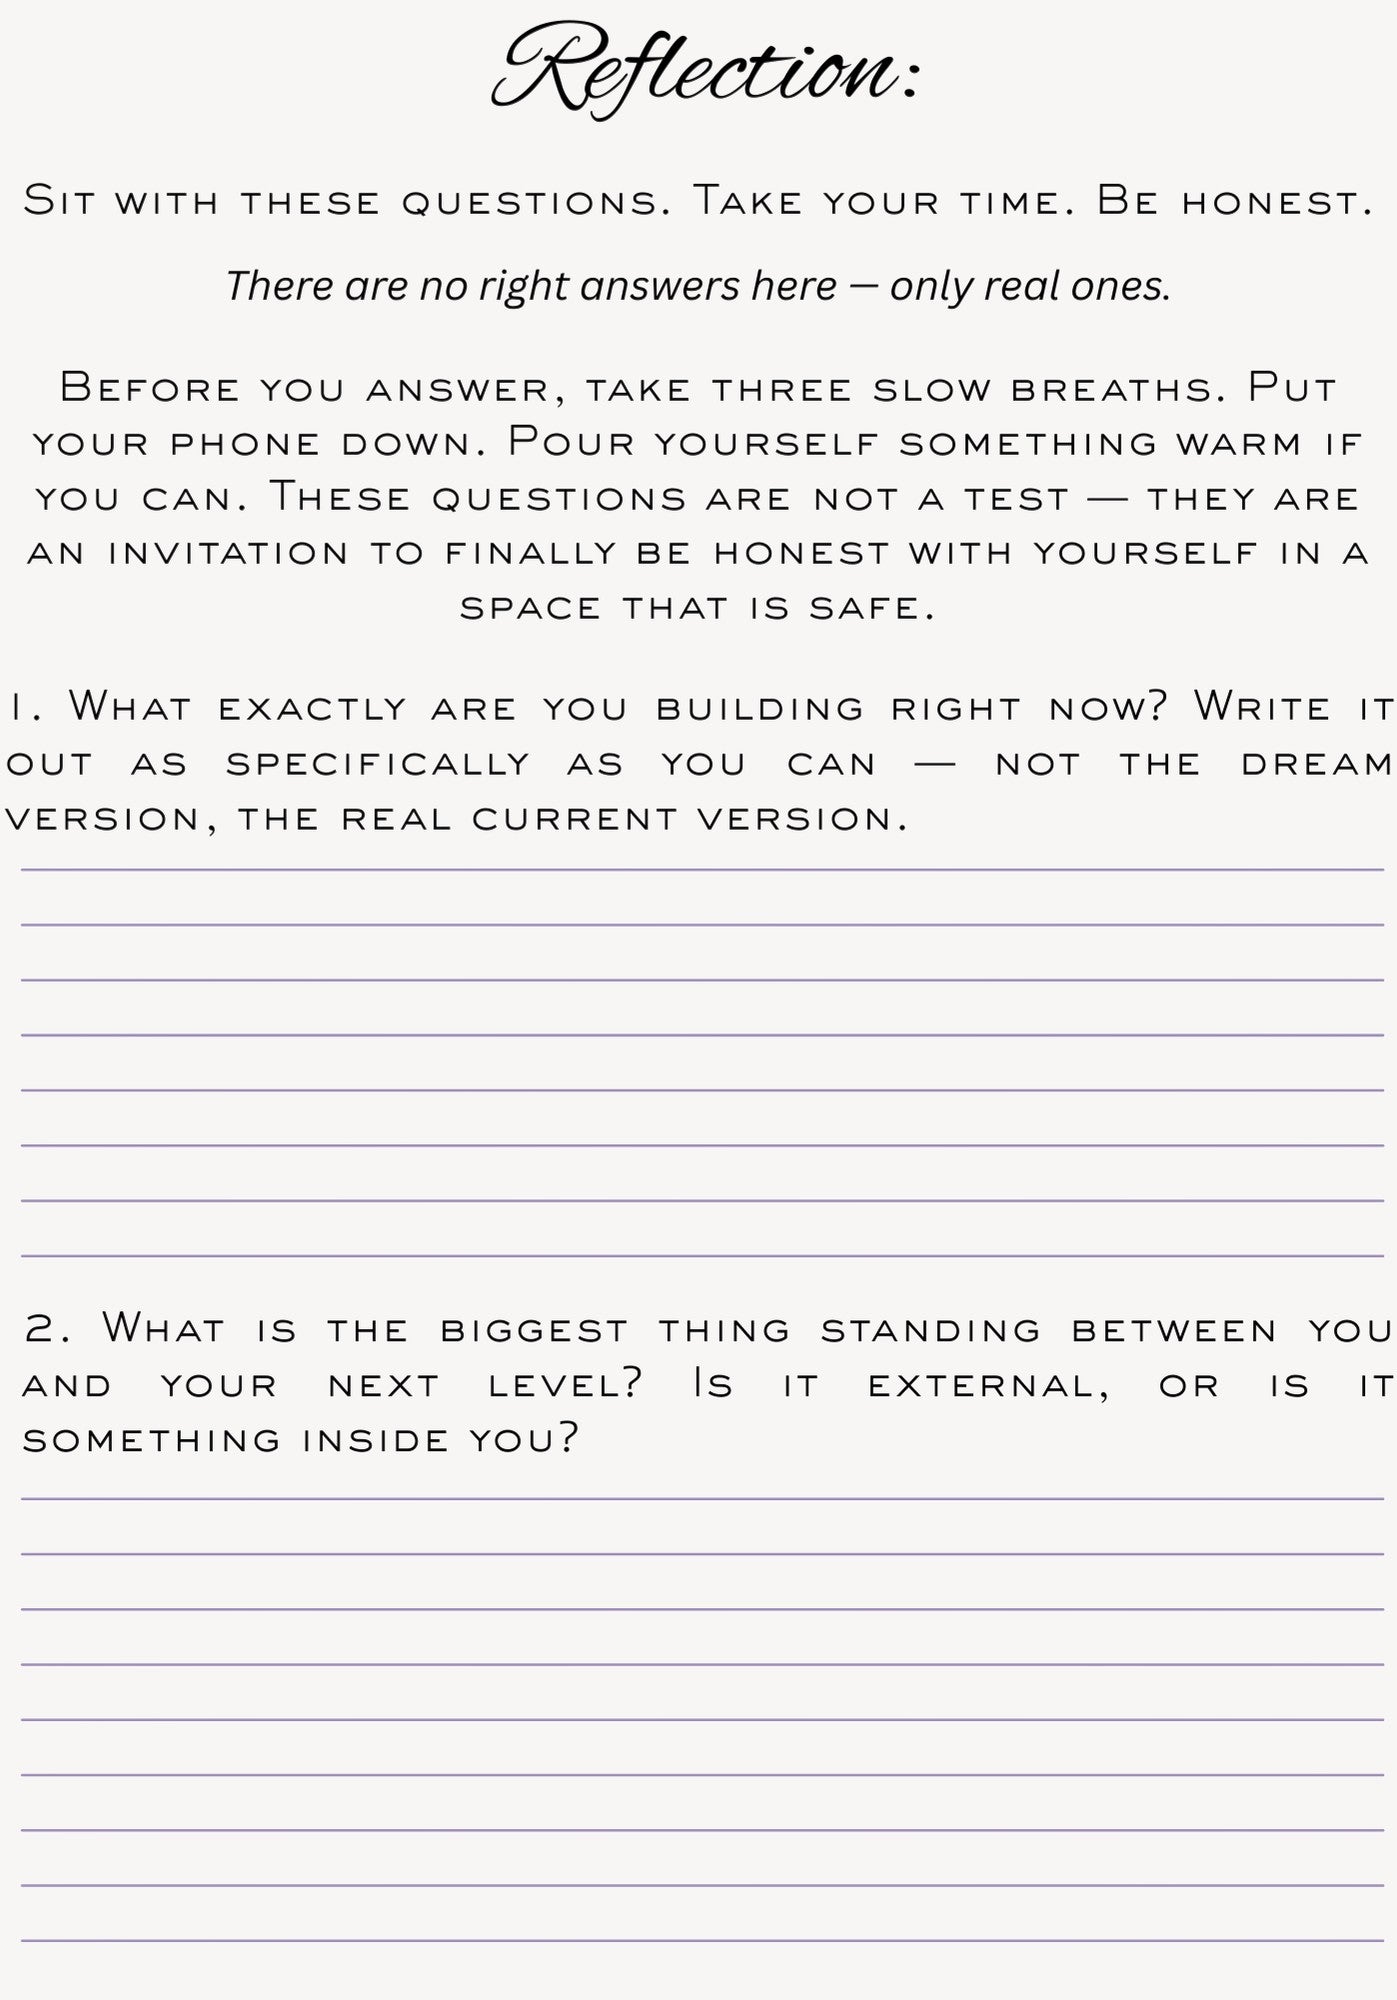 Reflection:
Sit with these questions. Take your time. Be honest.
There are no right answers here — only real ones.
Before you answer, take three slow breaths. Put
your phone down. Pour yourself something warm if
you can. These questions are not a test — they are
an invitation to finally be honest with yourself in a
space that is safe.
1. What exactly are you building right now? Write it
out as specifically as you can — not the dream
version, the real current version.
2. What is the biggest thing standing between you
and your next level? Is it external, or is it
something inside you?